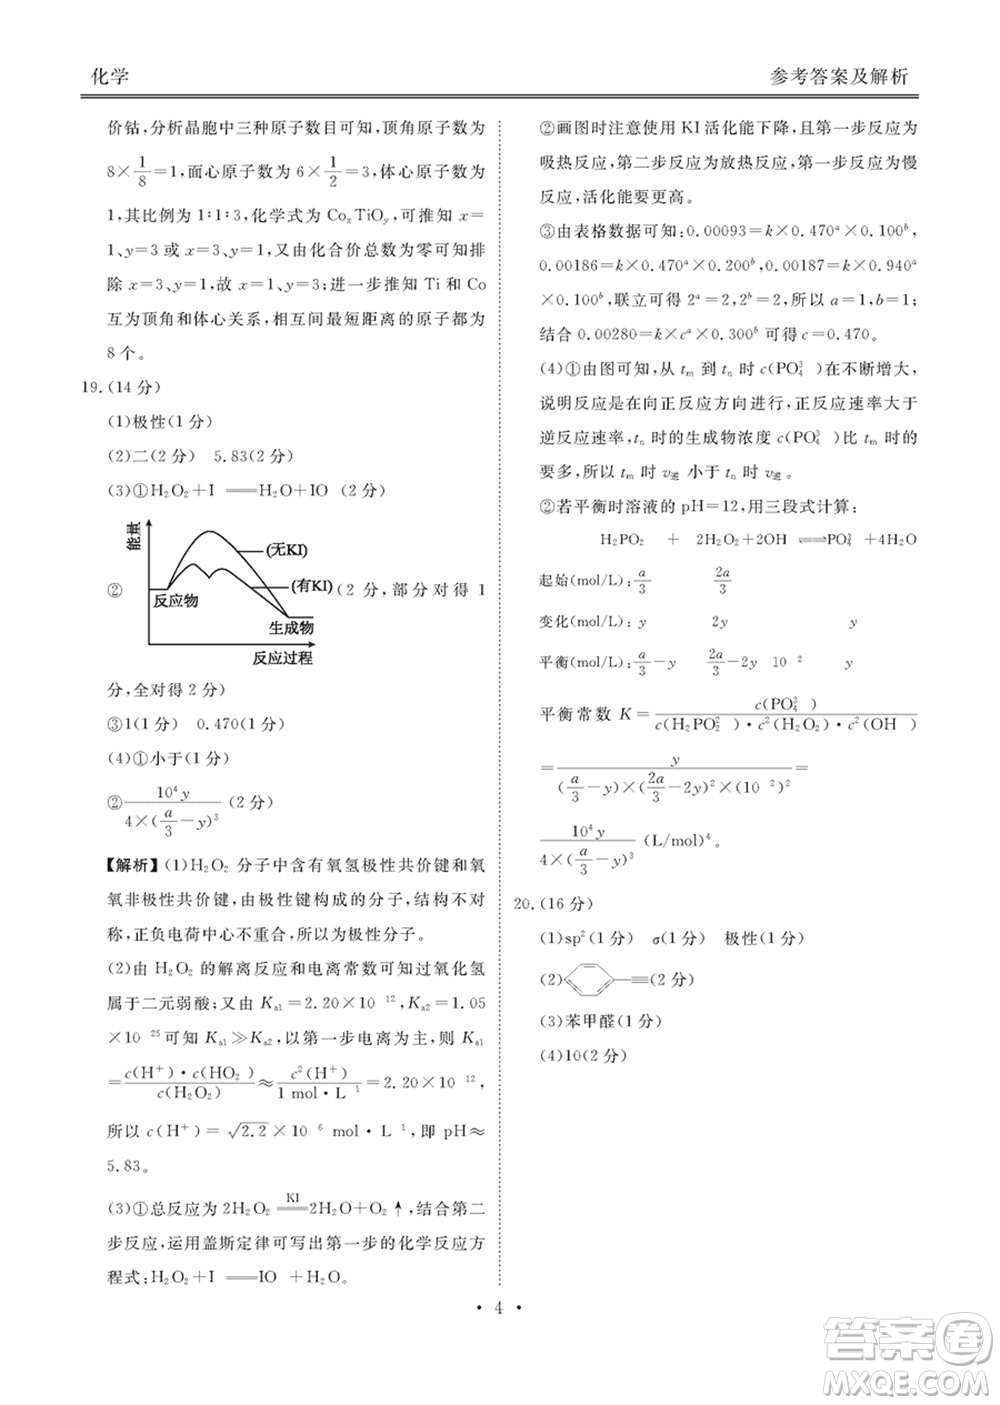 化学
参考答案及解析
价钴,分析晶胞中三种原子数目可知,顶角原子数为
8×1/8=1,面心原子数为 6×1/2=3,体心原子数为
1,其比例为 1∶1∶3,化学式为 CoₓTiOᵧ,可推知 x=
1、y=3 或 x=3、y=1,又由化合价总数为零可知排
除 x=3、y=1,故 x=1、y=3;进一步推知 Ti 和 Co
互为顶角和体心关系,相互间最短距离的原子都为
8 个。
19.(14 分)
(1)极性(1 分)
(2)二(2 分) 5.83(2 分)
(3)①H₂O₂+I ══H₂O+IO (2 分)
能量
(无KI)
②
(有KI)
(2 分,部分对得 1
反应物
生成物
反应过程
分,全对得 2 分)
③1(1 分) 0.470(1 分)
(4)①小于(1 分)
②10⁴y/4×(a/3-y)³ (2 分)
【解析】(1)H₂O₂ 分子中含有氧氢极性共价键和氧
氧非极性共价键,由极性键构成的分子,结构不对
称,正负电荷中心不重合,所以为极性分子。
(2)由 H₂O₂ 的解离反应和电离常数可知过氧化氢
属于二元弱酸;又由 Kₐ₁=2.20×10 ¹²,Kₐ₂=1.05
×10 ²⁵可知 Kₐ₁≫Kₐ₂,以第一步电离为主,则 Kₐ₁
=c(H⁺)·c(HO₂ )/c(H₂O₂)≈c²(H⁺)/1 mol·L ¹=2.20×10 ¹²,
所以 c(H⁺)=√2.2×10 ⁶ mol·L ¹,即 pH≈
5.83。
(3)①总反应为 2H₂O₂ ══KI 2H₂O+O₂↑,结合第二
步反应,运用盖斯定律可写出第一步的化学反应方
程式:H₂O₂+I ══IO +H₂O。
②画图时注意使用 KI 活化能下降,且第一步反应为
吸热反应,第二步反应为放热反应,第一步反应为慢
反应,活化能要更高。
③由表格数据可知:0.00093=k×0.470ᵃ×0.100ᵇ,
0.00186=k×0.470ᵃ×0.200ᵇ,0.00187=k×0.940ᵃ
×0.100ᵇ,联立可得 2ᵃ=2,2ᵇ=2,所以 a=1,b=1;
结合 0.00280=k×cᵃ×0.300ᵇ 可得 c=0.470。
(4)①由图可知,从 tₘ 到 tₙ 时 c(PO₄³ )在不断增大,
说明反应是在向正反应方向进行,正反应速率大于
逆反应速率,tₙ 时的生成物浓度 c(PO₄³ )比 tₘ 时的
要多,所以 tₘ 时 v逆 小于 tₙ 时 v逆。
②若平衡时溶液的 pH=12,用三段式计算:
H₂PO₂ + 2H₂O₂+2OH ⇌PO₄³ +4H₂O
起始(mol/L):a/3 2a/3
变化(mol/L):y 2y y
平衡(mol/L):a/3-y 2a/3-2y 10 ² y
平衡常数 K=c(PO₄³ )/c(H₂PO₂² )·c²(H₂O₂)·c²(OH )
=y/(a/3-y)×(2a/3-2y)²×(10 ²)²=
10⁴y/4×(a/3-y)³ (L/mol)⁴。
20.(16 分)
(1)sp²(1 分) σ(1 分) 极性(1 分)
(2) (2 分)
(3)苯甲醛(1 分)
(4)10(2 分)
· 4 ·
答案卷
MXQE.COM